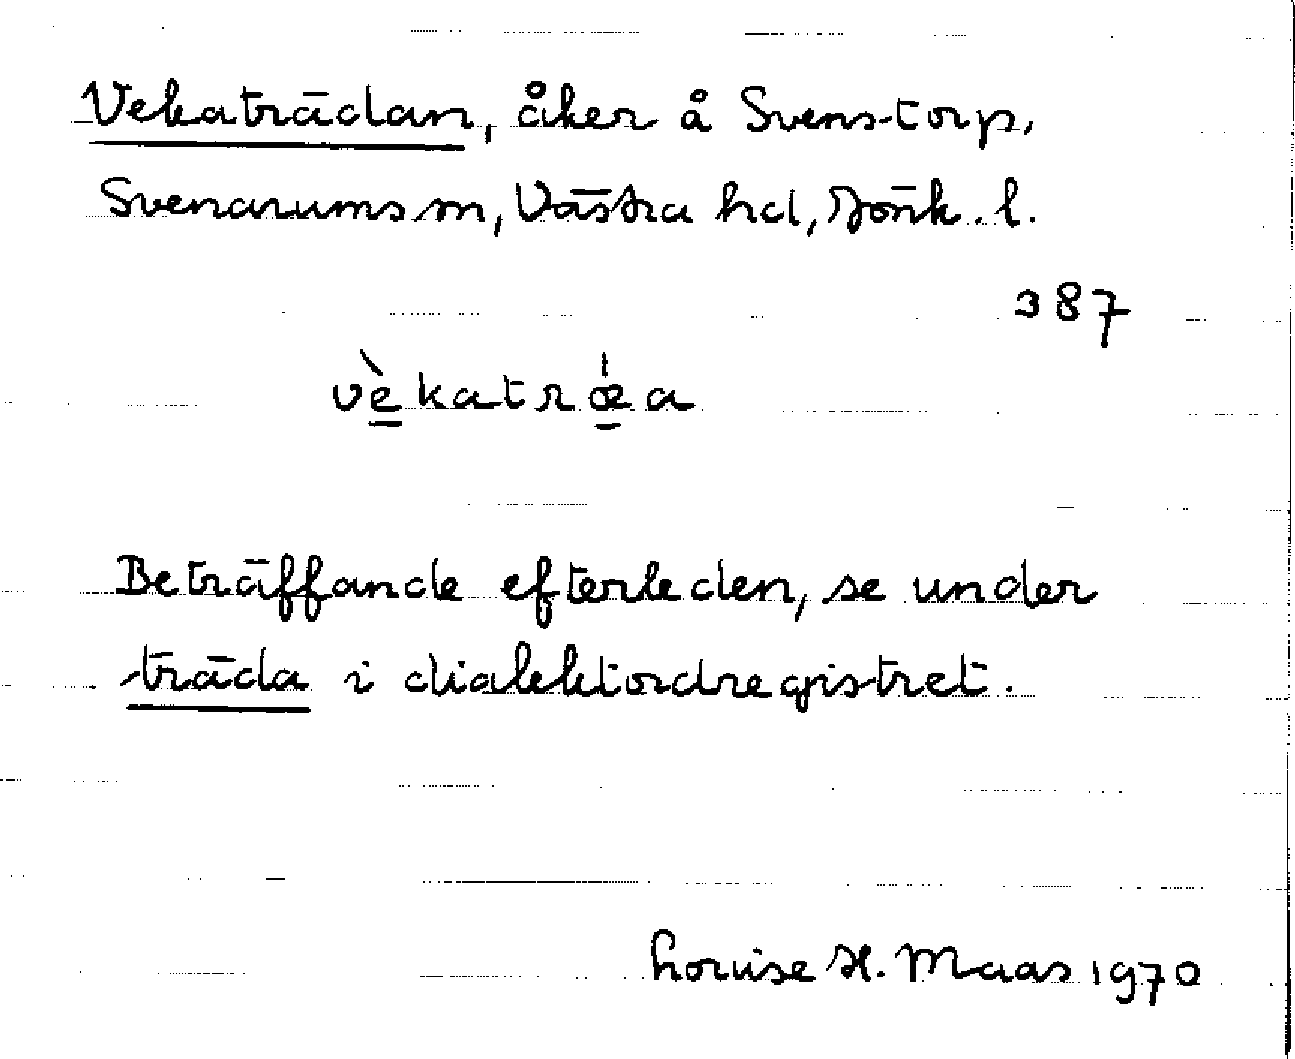 Vekaträdan, åker å Svenstorp,
Svenarums sn, Västra hd, Jönk. l.
387
vèkatrǿea
Beträffande efterleden, se under
träda i dialektordregistret.
Louise H. Maas 1970